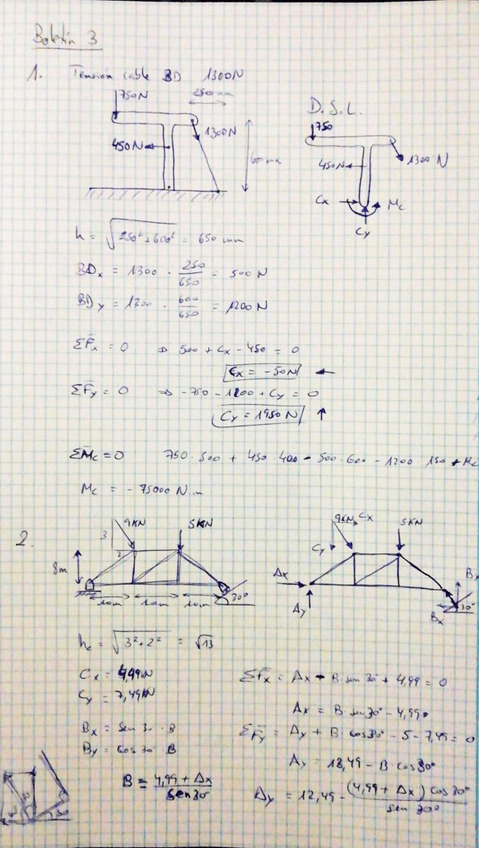 Boletín 3
1. Tensión cable BD 1300N
750N 250mm
D.S.L.
750
1300N
450N
600mm
450N
1300 N
Cx Mc
Cy
h = √250² + 600² = 650 mm
BDx = 1300 · 250/650 = 500 N
BDy = 1300 · 600/650 = 1200N
ΣFx = 0 ⇒ 500 + Cx - 450 = 0
Cx = -50N ←
ΣFy = 0 ⇒ -750 - 1200 + Cy = 0
Cy = 1950N ↑
ΣMc = 0 750·500 + 450·400 - 500·600 - 1200 150 + Mc
Mc = -75000 N.m
2.
9KN 5KN
3
2
8m
10m 10m 10m
30°
9KN Cx 5KN
Cy
Ax
Ay
Bx
30°
hc = √3²+2² = √13
Cx = 4,99KN
Cy = 7,49KN
Bx = sen 30 · B
By = cos 30 · B
B = 4,99 + Ax / sen30°
ΣFx = Ax - B sen 30° + 4,99 = 0
Ax = B sen30° - 4,99
ΣFy = Ay + B cos30° - 5 - 7,49 = 0
Ay = 12,49 - B·cos30°
Ay = 12,49 - (4,99 + Ax) cos30° / sen 30°